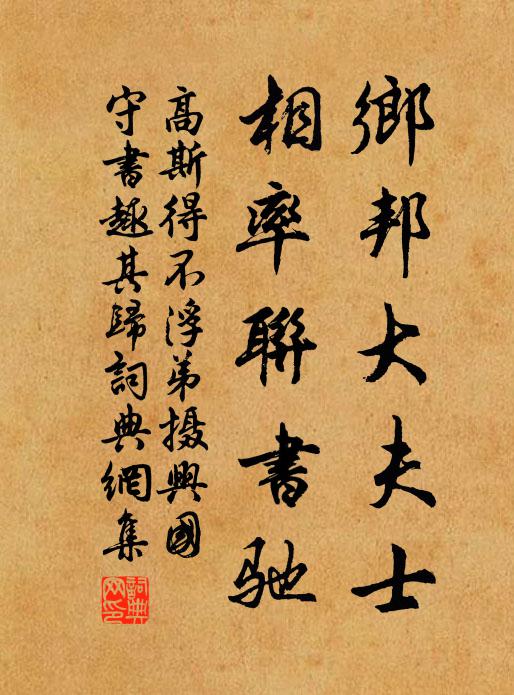 鄉邦大夫士
相率聯書馳
高斯得不浮弟摄興國
守書趣其歸詞典網集
詞典
网印